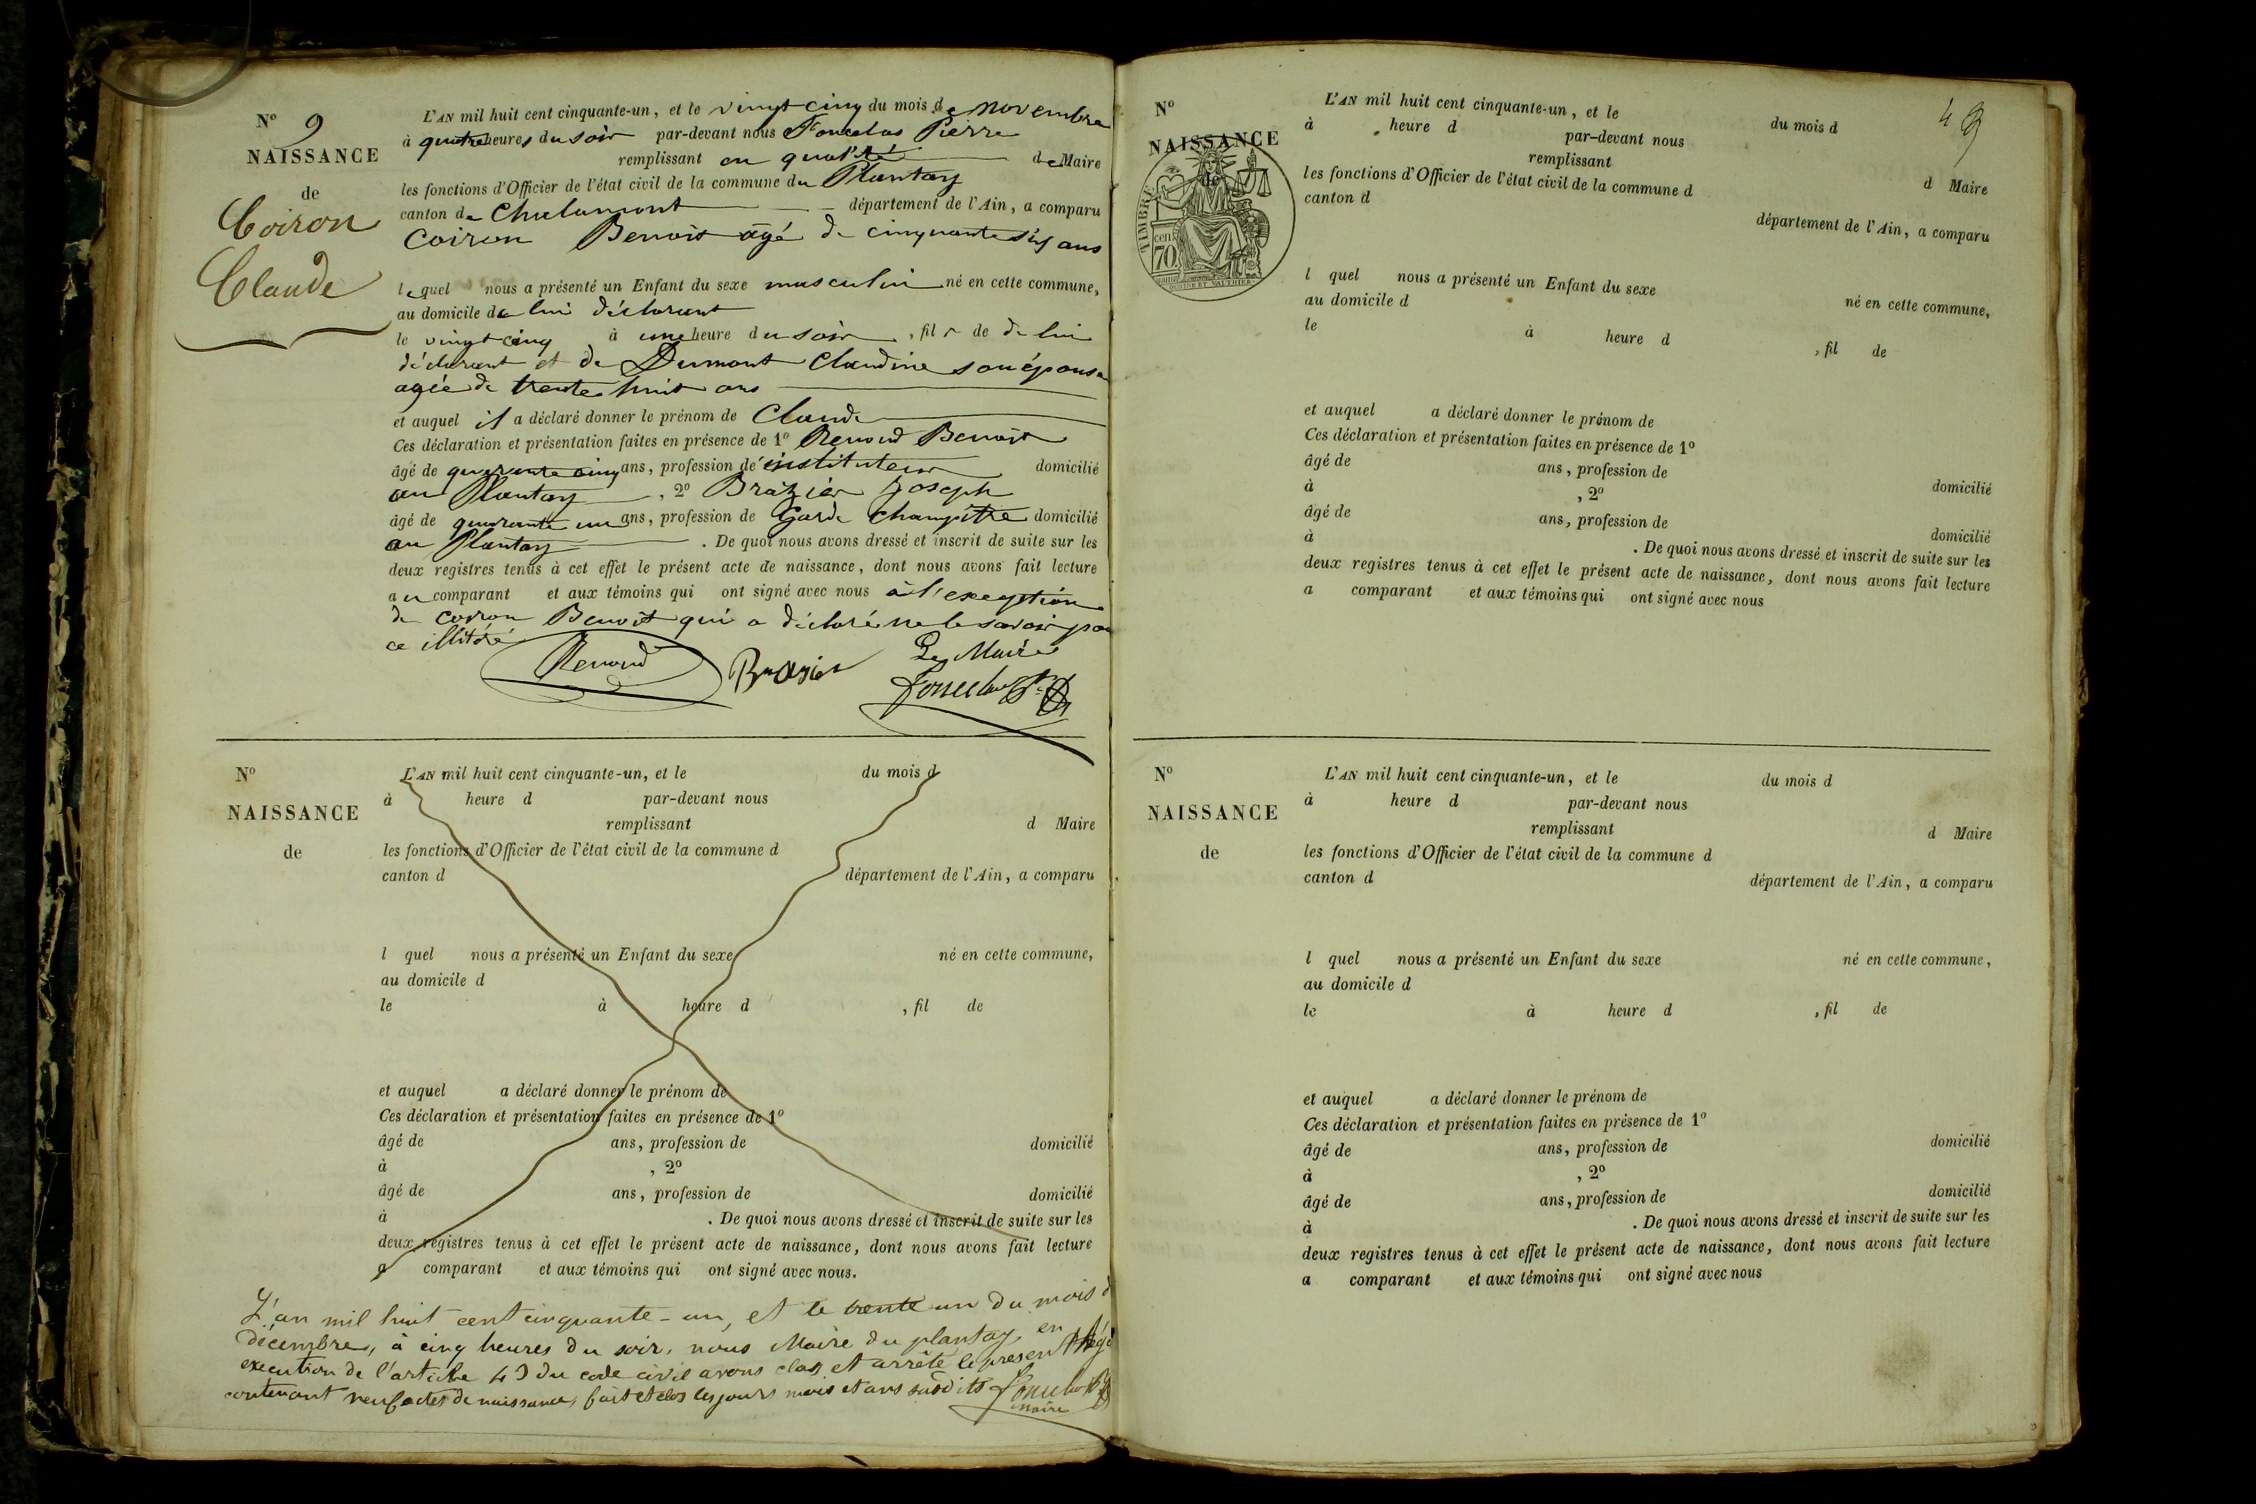 N° 9
NAISSANCE
de
Coiron
Claude
L'AN mil huit cent cinquante-un, et le vingt cinq du mois de novembre
à quatre heures du soir par-devant nous Pierre
remplissant en qualité de Maire
les fonctions d'Officier de l'état civil de la commune du Plantay
canton de Chalamont département de l'Ain, a comparu
Coiron Benoit âgé de cinquante six ans
lequel nous a présenté un Enfant du sexe musculin né en cette commune,
au domicile de lui déclarant
le vingt cinq à une heure du soir, fils de de lui
déclarant et de Dumont Claudine son épouse
agée de trente huit ans
et auquel il a déclaré donner le prénom de Claude
Ces déclaration et présentation faites en présence de 1° Renoud Benoit
âgé de quarante cinq ans, profession de instituteur domicilié
au Plantay, 2° Brazier Joseph
âgé de quarante un ans, profession de Garde champêtre domicilié
au Plantay. De quoi nous avons dressé et inscrit de suite sur les
deux registres tenus à cet effet le présent acte de naissance, dont nous avons fait lecture
au comparant et aux témoins qui ont signé avec nous à l'exeption
de Coiron Benoit qui a déclaré ne le savoir pas
ce
Renoud Brasier Le Maire
N°
NAISSANCE
de
L'AN mil huit cent cinquante-un, et le du mois d
à heure d par-devant nous
remplissant d Maire
les fonctions d'Officier de l'état civil de la commune d
canton d département de l'Ain, a comparu
l quel nous a présenté un Enfant du sexe né en cette commune,
au domicile d
le à heure d , fil de
et auquel a déclaré donner le prénom de
Ces déclaration et présentation faites en présence de 1°
âgé de ans, profession de domicilié
à , 2°
âgé de ans, profession de domicilié
à . De quoi nous avons dressé et inscrit de suite sur les
deux registres tenus à cet effet le présent acte de naissance, dont nous avons fait lecture
a comparant et aux témoins qui ont signé avec nous.
L'an mil huit cent cinquante-un, et le trente un du mois d
décembre, à cinq heures du soir, nous Maire du plantay, en
execution de l'article 43 du code civil avons clos et arrêté le present
contenant neuf actes de naissance, fait et clos les jours mois et ans susdits
maire
N°
NAISSANCE
de
TIMBRE
cen.
70
L'AN mil huit cent cinquante-un, et le du mois d
à heure d par-devant nous
remplissant d Maire
les fonctions d'Officier de l'état civil de la commune d
canton d département de l'Ain, a comparu
l quel nous a présenté un Enfant du sexe né en cette commune,
au domicile d
le à heure d , fil de
et auquel a déclaré donner le prénom de
Ces déclaration et présentation faites en présence de 1°
âgé de ans, profession de domicilié
à , 2°
âgé de ans, profession de domicilié
à . De quoi nous avons dressé et inscrit de suite sur les
deux registres tenus à cet effet le présent acte de naissance, dont nous avons fait lecture
a comparant et aux témoins qui ont signé avec nous
N°
NAISSANCE
de
L'AN mil huit cent cinquante-un, et le du mois d
à heure d par-devant nous
remplissant d Maire
les fonctions d'Officier de l'état civil de la commune d
canton d département de l'Ain, a comparu
l quel nous a présenté un Enfant du sexe né en cette commune,
au domicile d
le à heure d , fil de
et auquel a déclaré donner le prénom de
Ces déclaration et présentation faites en présence de 1°
âgé de ans, profession de domicilié
à , 2°
âgé de ans, profession de domicilié
à . De quoi nous avons dressé et inscrit de suite sur les
deux registres tenus à cet effet le présent acte de naissance, dont nous avons fait lecture
a comparant et aux témoins qui ont signé avec nous